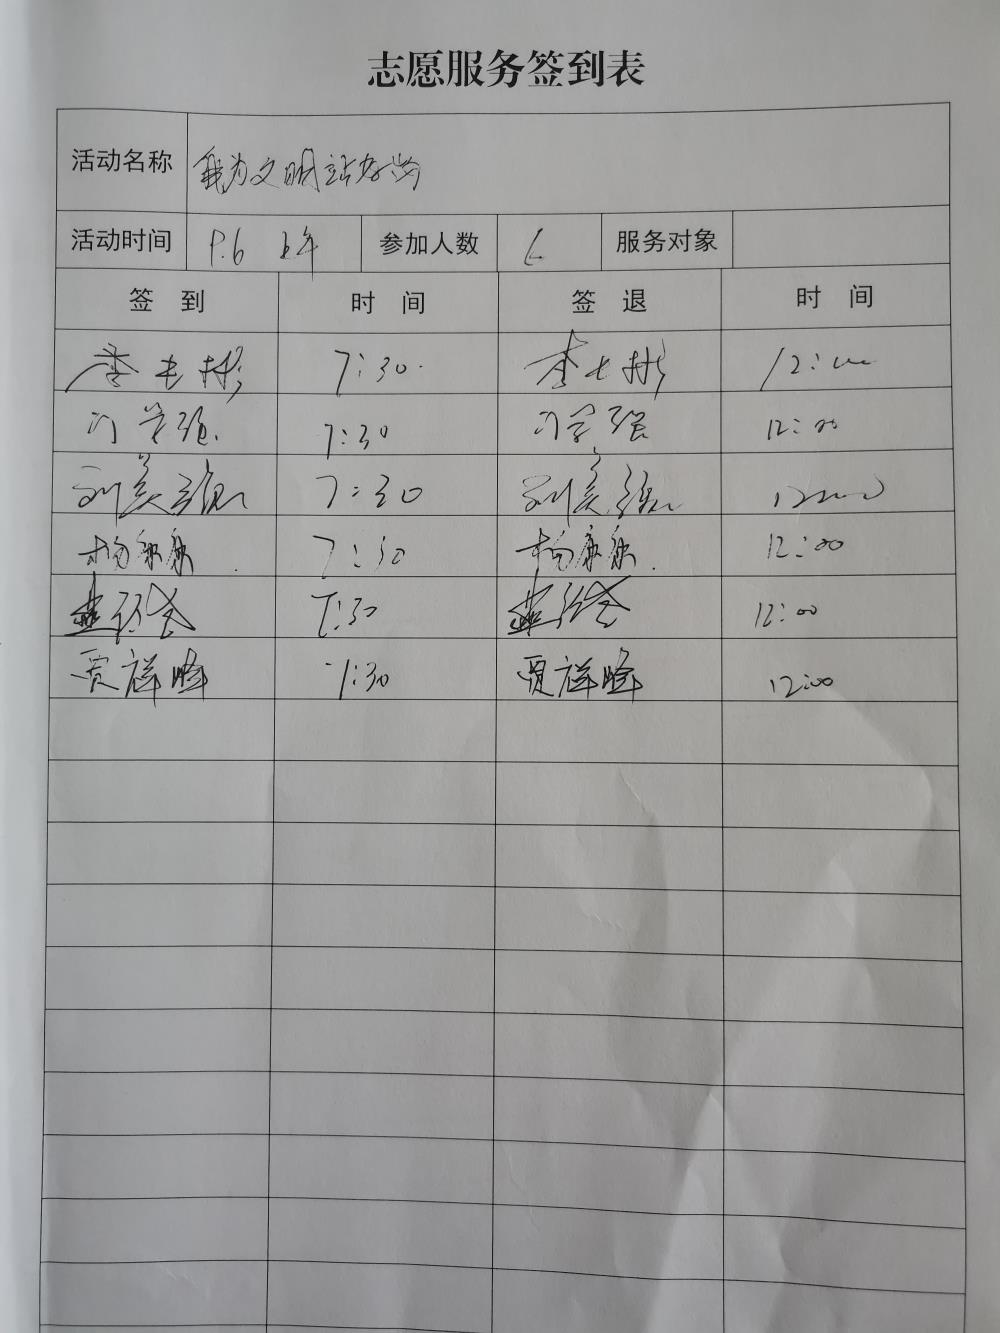 志愿服务签到表
活动名称 我为文明站好岗
活动时间 9.6 上午 参加人数 6 服务对象
签 到 时 间 签 退 时 间
7:30 12:00
门学强 7:30 门学强 12:00
刘美 7:30 刘美 12:00
杨 7:30 杨 12:00
7:30 12:00
贾祥峰 7:30 贾祥峰 12:00